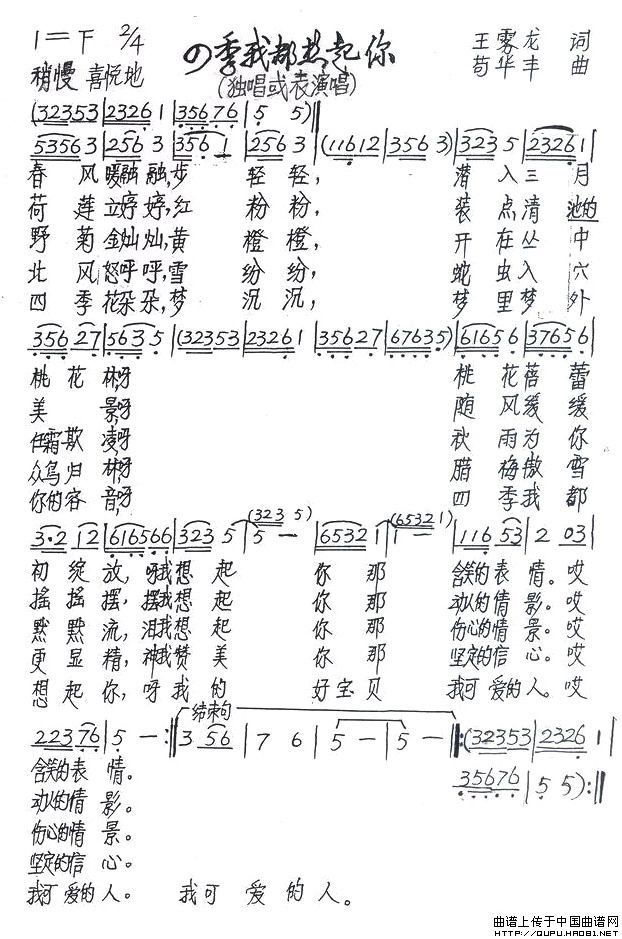 1=F 2/4
四季我都想起你
王雾龙 词
稍慢 喜悦地
(独唱或表演唱)
苟华丰 曲
(32353|23261|35676|5 5)‖
53563|2563|3561|2563|(11612|3563)|3235|23261|
春 风暖融融,步 轻 轻, 潜 入三 月
荷 莲立婷婷,红 粉 粉, 装 点清 池的
野 菊金灿灿,黄 橙 橙, 开 在丛 中
北 风怒呼呼,雪 纷 纷, 蛇 虫入 穴
四 季花朵朵,梦 沉 沉, 梦 里梦 外
356 27|5635|(32353|23261|35627|67635)|61656|37656|
桃 花 林,呀 桃 花蓓 蕾
美 景,呀 随 风缓 缓
任霜欺 凌,呀 秋 雨为 你
众鸟归 林,呀 腊 梅傲 雪
你的容 音,呀 四 季我 都
(323 5) (65321)
3·2 12|61656 6|323 5|5 —|6532 1|1 —|116 53|2 03|
初 绽 放,呀我想 起 你 那 含笑的表 情。哎
摇 摇 摆,摆我想 起 你 那 动人的情 影。哎
黙 黙 流,泪我想 起 你 那 伤心的情 景。哎
更 显 精,神我赞 美 你 那 坚定的信 心。哎
想 起 你,呀 我 的 好宝贝 我可爱的人。哎
结束句
223 76|5 —:‖3 56|7 6|5 —|5 —‖:(32353|23261|
含笑的表 情。
35676|5 5):‖
动人的情 影。
伤心的情 景。
坚定的信 心。
我可爱的人。 我可 爱 的 人。
曲谱上传于中国曲谱网
HTTP://QUPU.HAO81.NET